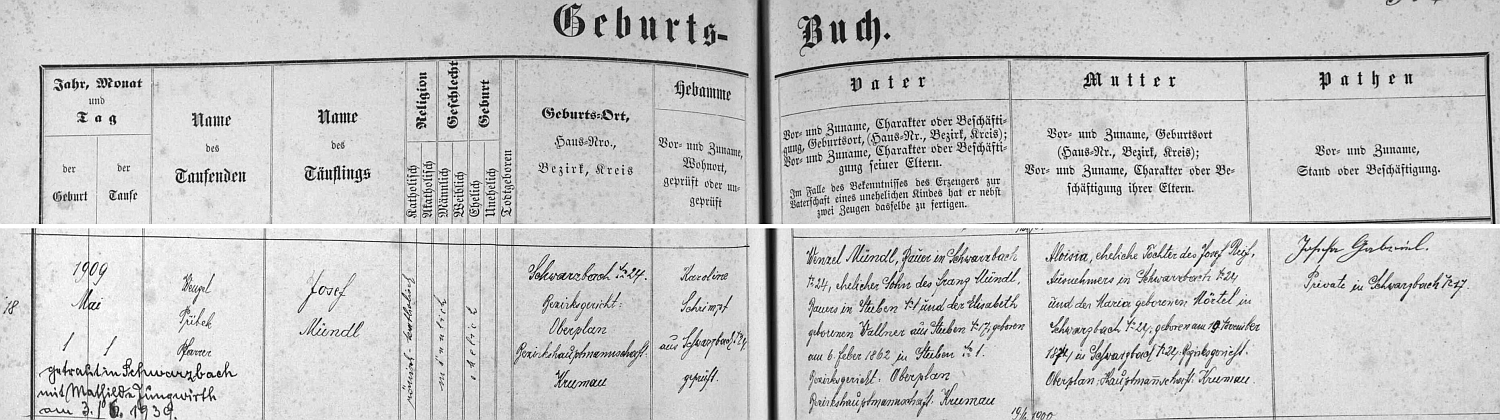 Geburts-
Buch.
Jahr, Monat
und
Tag
der
Geburt
der
Taufe
Name
des
Taufenden
Name
des
Täuflings
Religion
Katholisch
Akatholisch
Geschlecht
Männlich
Weiblich
Geburt
Ehelich
Unehelich
Todtgeboren
Geburts-Ort,
Haus-Nro.,
Bezirk, Kreis
Hebamme
Vor- und Zuname,
Wohnort,
geprüft oder un-
geprüft
Vater
Vor- und Zuname, Charakter oder Beschäfti-
gung, Geburtsort, (Haus-Nr., Bezirk, Kreis);
Vor- und Zuname, Charakter oder Beschäfti-
gung seiner Eltern.
Im Falle des Bekenntnisses des Erzeugers zur
Vaterschaft eines unehelichen Kindes hat er nebst
zwei Zeugen dasselbe zu fertigen.
Mutter
Vor- und Zuname, Geburtsort
(Haus-Nr., Bezirk, Kreis);
Vor- und Zuname, Charakter oder Be-
schäftigung ihrer Eltern.
Pathen
Vor- und Zuname,
Stand oder Beschäftigung.
18
1909
Mai
1 1
getraut in Schwarzbach
mit Mathilde Jungwirth
am 3./6. 1939.
Wenzel
Přibek
Pfarrer
Josef
Miendl
römisch-katholisch
männlich
ehelich
Schwarzbach № 24.
Bezirksgericht:
Oberplan
Bezirkshauptmannschaft:
Krumau
Karoline
Schimpf
aus Schwarzbach
geprüft.
Wenzel Miendl, Bauer in Schwarzbach
№ 24, ehelicher Sohn des Franz Miendl,
Bauers in Stuben № 1 und der Elisabeth
geborenen Wallner aus Stuben № 17, geboren
am 6. Feber 1862 in Stuben № 1.
Bezirksgericht: Oberplan
Bezirkshauptmannschaft: Krumau
Aloisia, eheliche Tochter des Josef Reif,
Ausnehmers in Schwarzbach № 24
und der Maria geborenen Mörtel in
Schwarzbach № 24, geboren am
1874 in Schwarzbach № 24. Bezirksgericht:
Oberplan. Hauptmannschaft: Krumau.
Josefa Gabriel.
Private in Schwarzbach № 47.